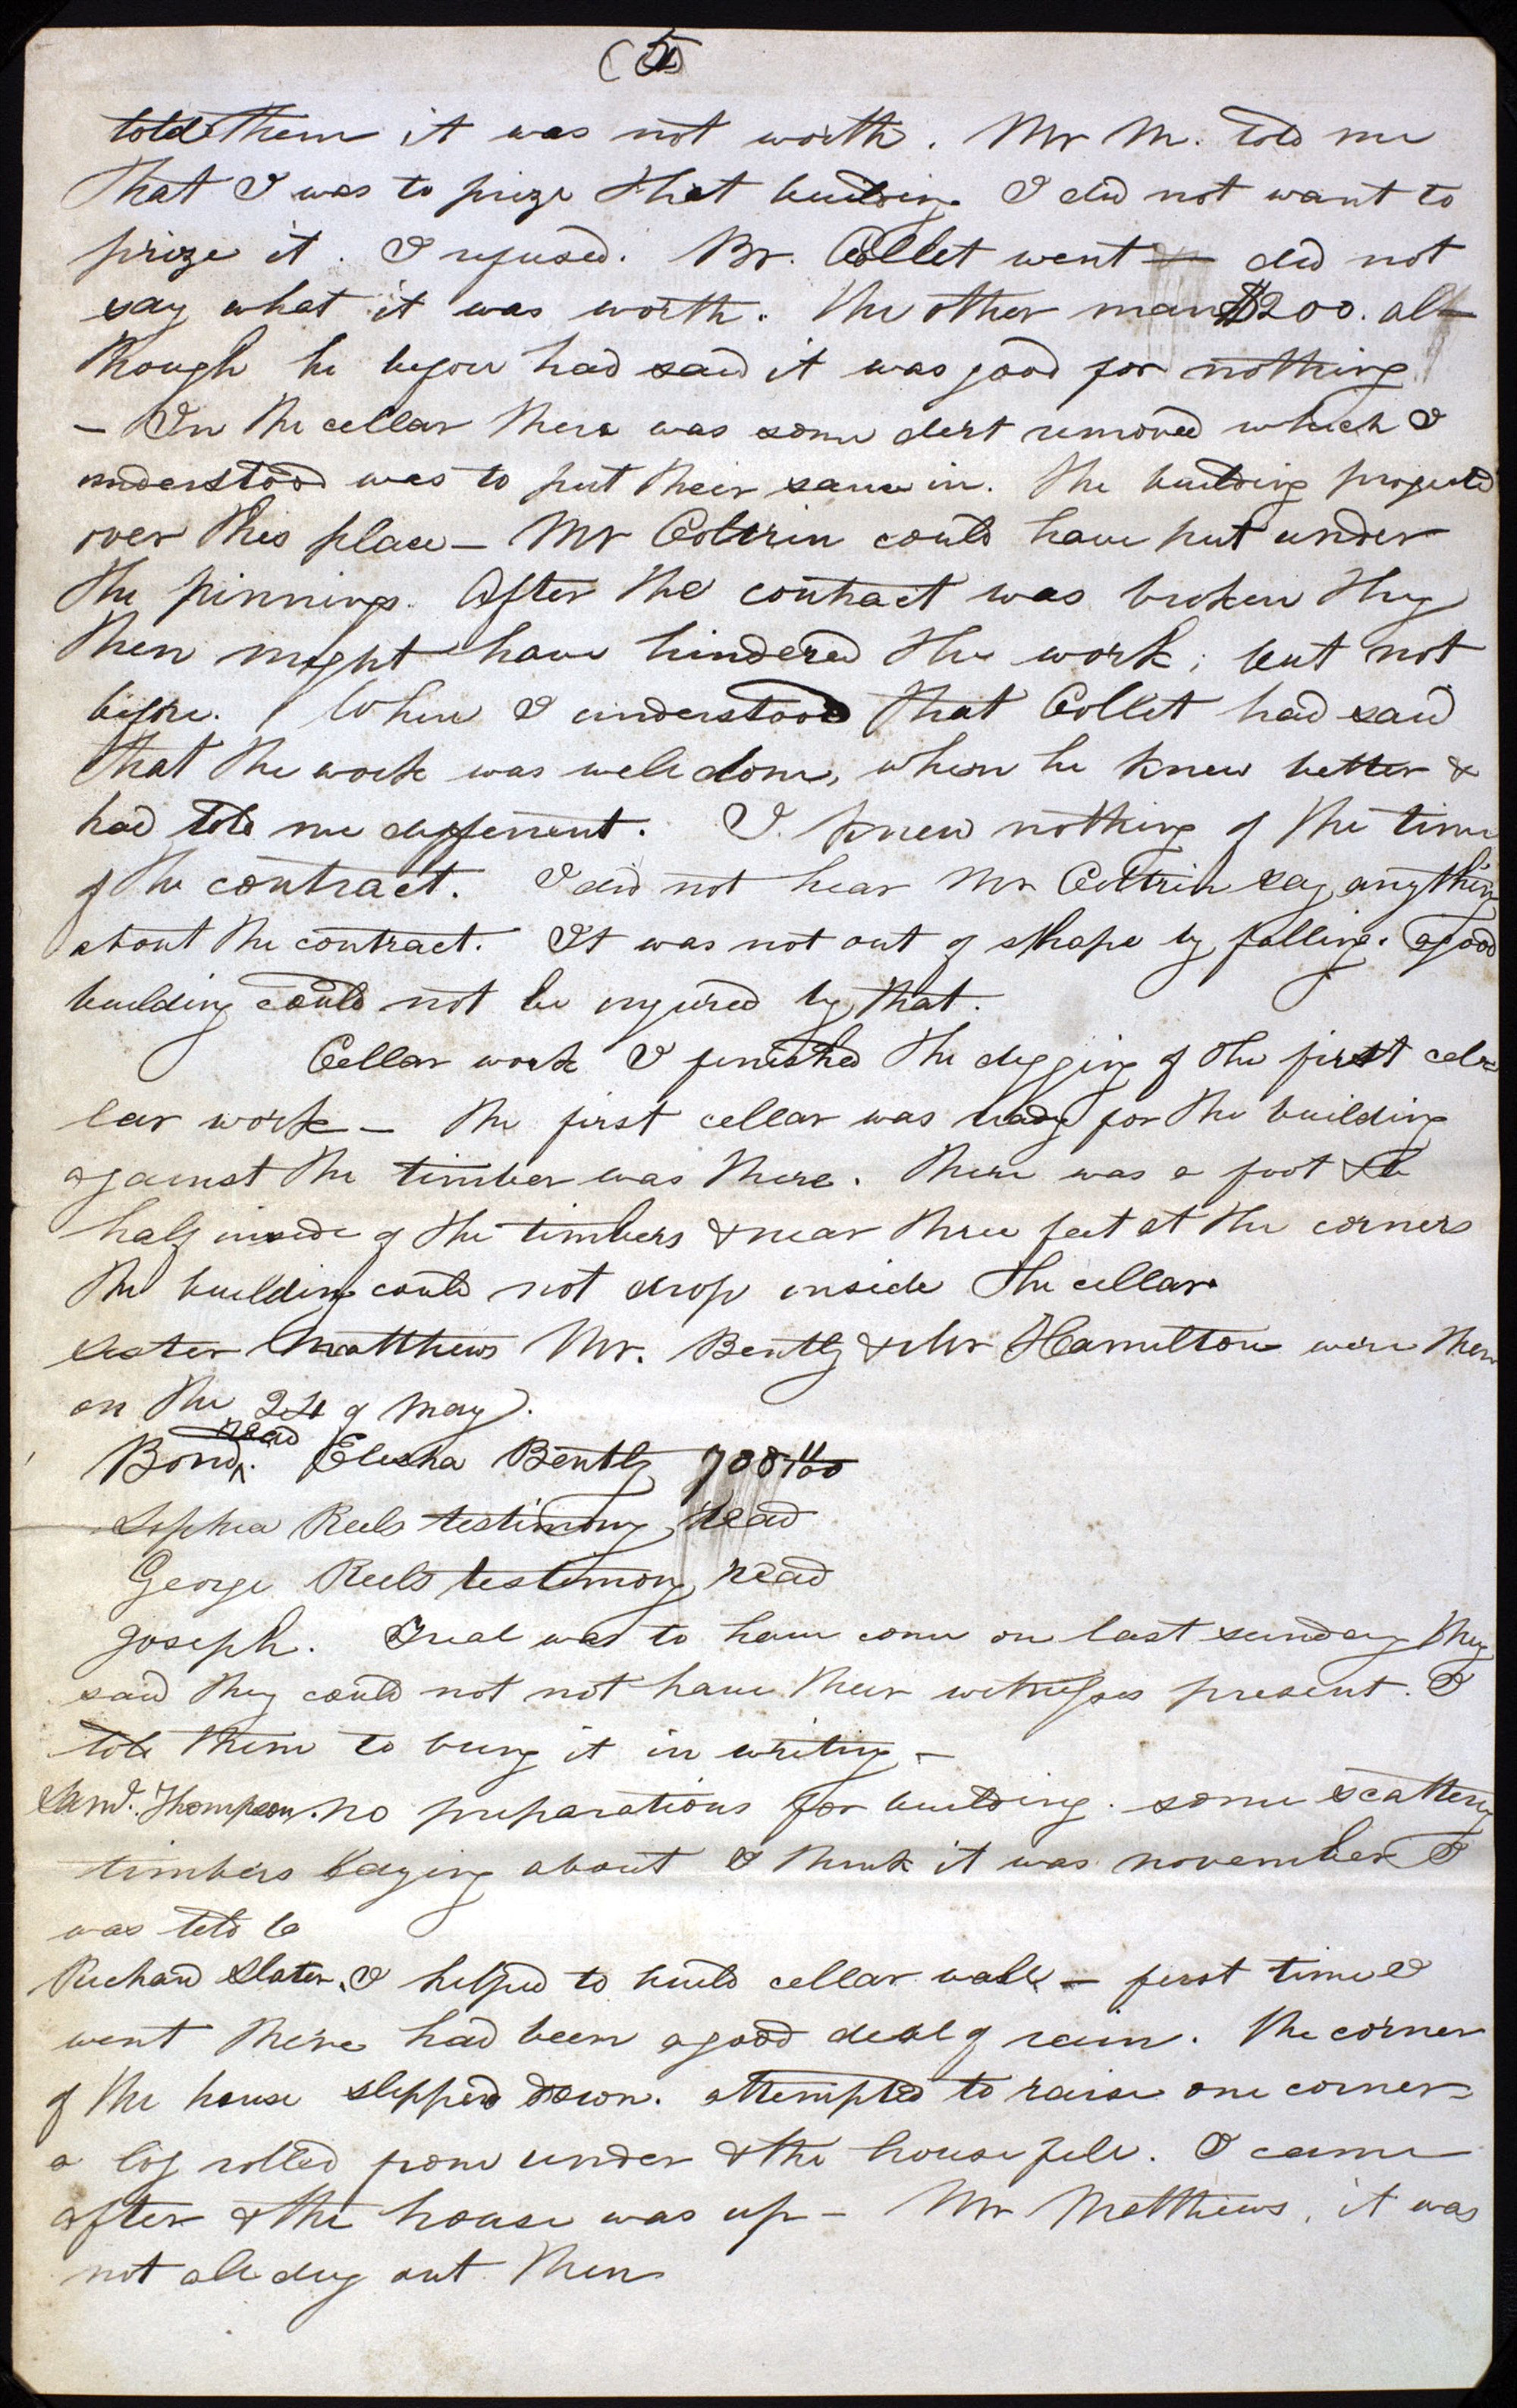 (5)
told them it was not worth. Mr M. told me
that I was to prize that building I did not want to
prize it. I refused. Br. Collet went & did not
say what it was worth. The other man $200. al-
though he before had said it was good for nothing
— In the cellar there was some dirt removed which I
understood was to put their in. The building projected
over this place — Mr Coltrin could have put under
the pinnings. After the contract was broken they
then might have hindered the work; but not
before. When I understood that Collet had said
that the work was well done, when he knew better &
had told me different. I. knew nothing of the time
of the contract. I did not hear Mr Coltrin say anything
about the contract. It was not out of shape by falling. a good
building could not be injured by that.
Cellar work I finished the digging of the first cel-
lar work — the first cellar was ready for the building
against the timber was there. There was a foot & a
half inside of the timbers & near three feet at the corners
the building could not drop inside the cellar.
sister Matthews Mr. Bently & Mr Hamilton were then
on the 24 of May.
read
Bond. Elisha Bently 700
Sophia Reels testimony read
George Reels testimony read
Joseph. Trial was to have come on last sunday they
said they could not not have their witnesses present. I
told them to bring it in writing —
Saml. Thompson. no preparations for building. some scattering
timbers laying about I think it was november I
was told
Richard Slater. I helped to build cellar wall — first time I
went there had been a good deal of rain. The corner
of the house slipped down. attempted to raise one corner
a log rolled from under & the house fell. I came
after & the house was up — Mr Matthews, it was
not all dug out then